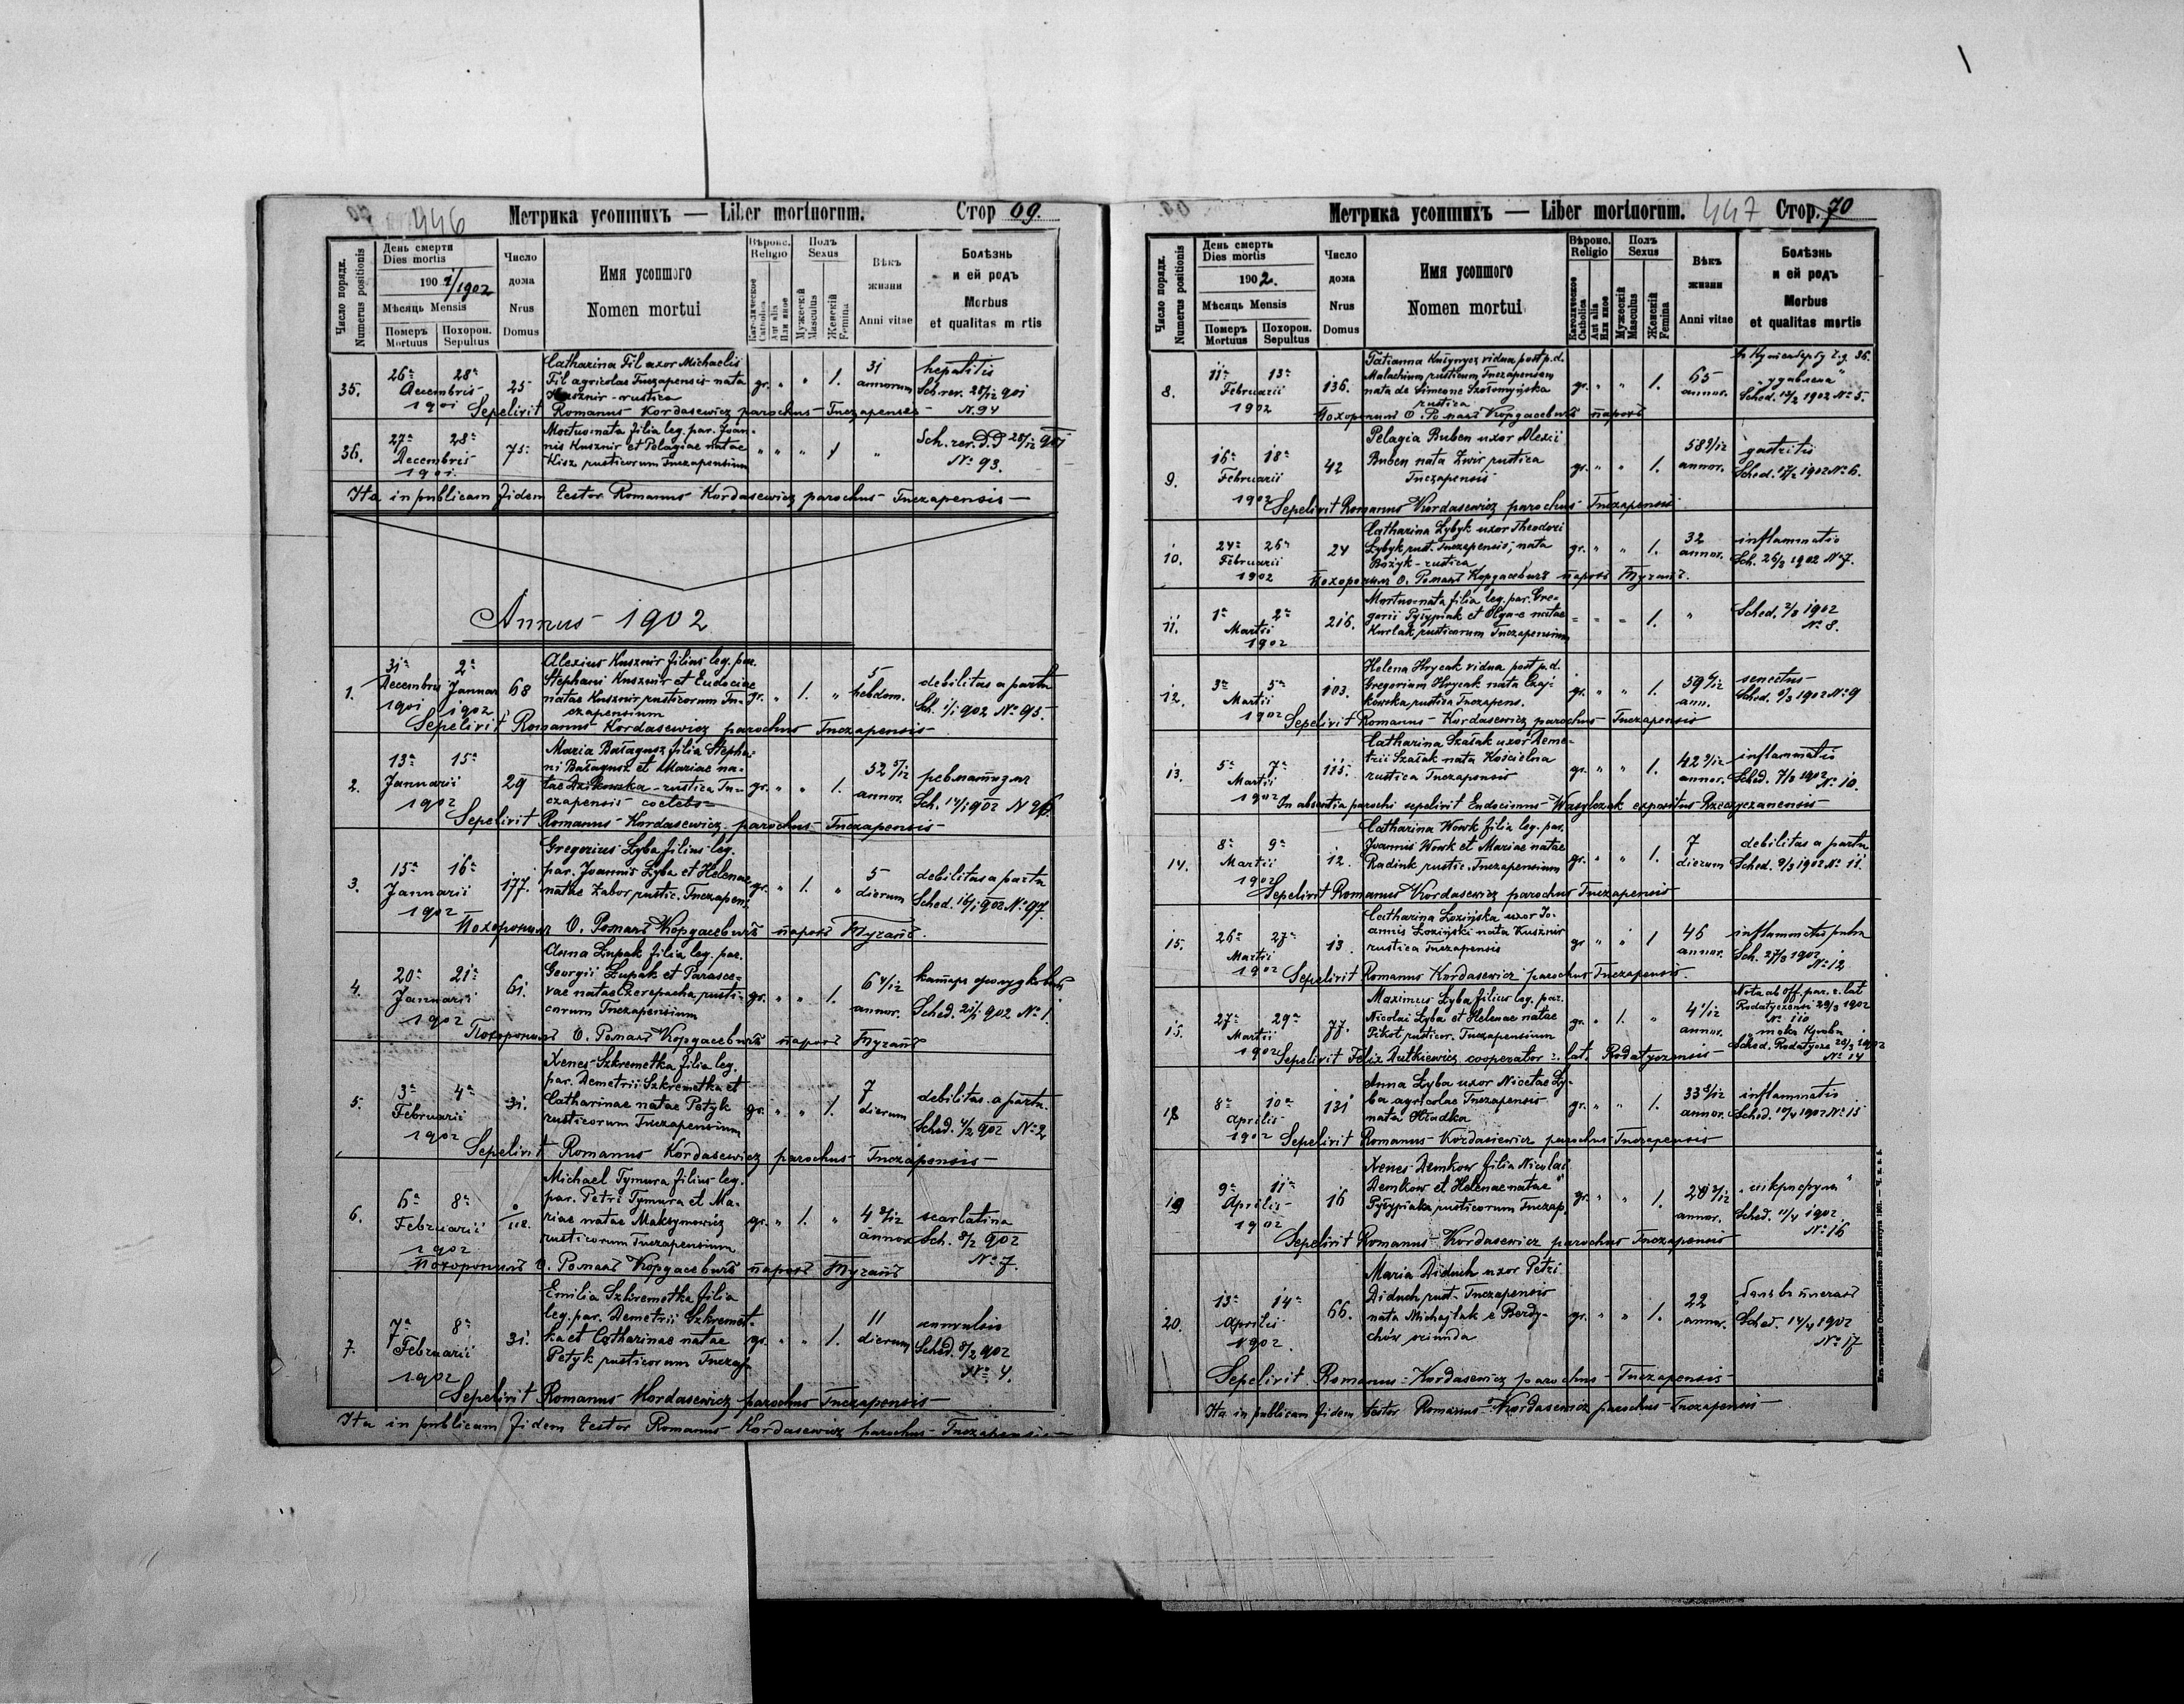 446
Метрика усопшихъ — Liber mortuorum.
Стор 69.
Число порядк.
Numerus positionis
День смерти
Dies mortis
1901/1902
Мѣсяць Mensis
Померъ
Mortuus
Похорон.
Sepultus
Число
дома
Nrus
Domus
Имя усопшого
Nomen mortui
Вѣроис.
Religio
Католическое
Catholica
Aut alia
Или иное
Полъ
Sexus
Мужескій
Masculus
Женскій
Femina
Вѣкъ
жизни
Anni vitae
Болѣзнь
и ей родъ
Morbus
et qualitas mortis
35.
26ª 28ª
Decembris
1901
25
Catharina Fil uxor Michaelis
Fil agricolae Tuczapensis nata
Kusznir - rustica
gr. " " 1.
31
annorum
hepatitis
Sch. rev. 28/12 901
N. 94
Sepelivit Romanus Kordasewicz parochus Tuczapensis
36.
27ª 28ª
Decembris
1901.
75.
Mortuonata filia leg. par. Joan-
nis Kusznir et Pelagiae natae
Kisz rusticorum Tuczapensium
" " " 1 "
Sch. rev. 28/12 901
Nº 93.
Ita in publicam fidem testor Romanus Kordasewicz parochus Tuczapensis
Annus 1902
1.
31ª 2ª
Decembris Januar
1901 1902
68
Alexius Kusznir filius leg. par.
Stephani Kusznir et Eudociae
natae Kusznir rusticorum Tu-
czapensium
gr. " 1. "
5
hebdom.
debilitas a partu
Sch. 1/1 902 Nº 95.
Sepelivit Romanus Kordasewicz parochus Tuczapensis
2.
13ª 15ª
Januarii
1902
29
Maria Bałagusz filia Stepha-
ni Bałagusz et Mariae na-
tae Dzikowska - rustica Tu-
czapensis - coelebs
gr. " " 1.
52 5/12
annor.
ревматизм
Sch. 14/1 902 N 96.
Sepelivit Romanus Kordasewicz parochus Tuczapensis
3.
15ª 16ª
Januarii
1902
177.
Gregorius Łyba filius leg.
par. Joannis Łyba et Helenae
natae Zabor rustic. Tuczapens.
gr. " 1. "
5
dierum
debilitas a partu
Sched. 16/1 902 Nº 97.
Похоронилъ О. Романъ Кордасевичъ парохъ Тучапъ.
4.
20ª 21ª
Januarii
1902
61.
Anna Łupak filia leg. par.
Georgii Łupak et Parasce-
vae natae Czerepacha rusti-
corum Tuczapensium
gr. " " 1.
6 4/12
annor.
Sched. 21/1 902 Nº 1.
Похоронилъ О. Романъ Кордасевичъ парохъ Тучапъ
5.
3ª 4ª
Februarii
1902
31.
Xenes Szkremetka filia leg.
par. Demetrii Szkremetka et
Catharinae natae Petyk
rusticorum Tuczapensium
gr. " " 1.
7
dierum
debilitas a partu.
Sched. 4/2 902 Nº 2
Sepelivit Romanus Kordasewicz parochus Tuczapensis
6.
6ª 8ª
Februarii
1902
112.
Michael Tymura filius leg.
par. Petri Tymura et Ma-
riae natae Maksymowicz
rusticorum Tuczapensium
gr. " 1. "
4 2/12
annor.
scarlatina
Sch. 8/2 902
Nº 7.
Похоронилъ О. Романъ Кордасевичъ парохъ Тучапъ
7.
7ª 8ª
Februarii
1902
31.
Emilia Szkremetka filia
leg. par. Demetrii Szkremet-
ka et Catharinae natae
Petyk rusticorum Tuczap.
gr. " " 1.
11
dierum
Sched. 8/2 902
Nº 4.
Sepelivit Romanus Kordasewicz parochus Tuczapensis
Ita in publicam fidem testor Romanus Kordasewicz parochus Tuczapensis
Метрика усопшихъ — Liber mortuorum.
447
Стор. 70
Число порядк.
Numerus positionis
День смерть
Dies mortis
1902.
Мѣсяць Mensis
Померъ
Mortuus
Похорон.
Sepultus
Число
дома
Nrus
Domus
Имя усопшого
Nomen mortui
Вѣроис.
Religio
Католическое
Catholica
Aut alia
Или иное
Полъ
Sexus
Мужескій
Masculus
Женскій
Femina
Вѣкъ
жизни
Anni vitae
Болѣзнь
и ей родъ
Morbus
et qualitas mortis
8.
11ª 13ª
Februarii
1902
136.
Tatianna Kuzynycz vidua post p.d.
Malachium rusticum Tuczapensem
nata de Simeone Szołomyńska
rustica
gr. " " 1.
65
annor.
"удавлена"
Sched. 12/2 1902 Nº 5.
Похоронилъ О. Романъ Кордасевичъ парохъ
9.
16ª 18ª
Februarii
1902
42
Pelagia Buben uxor Alexii
Buben nata Zwir rustica
Tuczapensis
gr. " " 1.
58 2/12
annor.
gastritis
Sched. 17/2 1902 Nº 6.
Sepelivit Romanus Kordasewicz parochus Tuczapensis
10.
24ª 26ª
Februarii
1902
24
Catharina Łybyk uxor Theodori
Łybyk rust. Tuczapensis; nata
Bożyk - rustica
gr. " " 1.
32
annor.
inflammatio
Sch. 26/2 1902 Nº 7.
Похоронилъ О. Романъ Кордасевичъ парохъ Тучапъ.
11.
1ª 2ª
Martii
1902
216.
Mortuonata filia leg. par. Gre-
gorii Pyżypiak et Olgae natae
Kurlak rusticorum Tuczapensium
" " " 1. "
Sched. 2/3 1902
Nº 8.
12.
3ª 5ª
Martii
1902
103.
Helena Hrycak vidua post p.d.
Gregorium Hrycak nata Czaj-
kowska rustica Tuczapens.
gr. " " 1.
ann.
senectus
Sched. 5/3 1902 Nº 9
Sepelivit Romanus Kordasewicz parochus Tuczapensis
13.
5ª 7ª
Martii
1902
115.
Catharina Szałak uxor Deme-
trii Szałak nata Kościelna
rustica Tuczapensis
gr. " " 1.
42 3/12
annor.
inflammatio
Sched. 7/3 1902
Nº 10.
In absentia parochi sepelivit Eudocimus Wasylczak expositus Rzeczyczanensis
14.
8ª 9ª
Martii
1902
12.
Catharina Wowk filia leg. par.
Joannis Wowk et Mariae natae
Radink rustic. Tuczapensium
gr. " " 1.
7
dierum
debilitas a partu
Sched. 9/3 1902 Nº 11.
Sepelivit Romanus Kordasewicz parochus Tuczapensis
15.
26ª 27ª
Martii
1902
13
Catharina Łozińska uxor Jo-
annis Łoziński nata Kusznir
rustica Tuczapensis
gr " " 1
46
annor.
Sch. 27/3 1902
Nº 12
Sepelivit Romanus Kordasewicz parochus Tuczapensis.
27ª 29ª
Martii
1902
77.
Maximus Łyba filius leg. par.
Nicolai Łyba et Helenae natae
Pikot rusticor. Tuczapensium
gr. " 1. "
4 1/12
annor.
Nota ab off. par. r. lat
Rodatyczensi 29/3 1902
Nº 110
Sched. Rodatycze 28/3 1902
Nº 14
Sepelivit Felix Dutkiewicz cooperator r. lat. Rodatyczensis
18
8ª 10ª
Aprilis
1902
131
Anna Łyba uxor Nicetae Ły-
ba agricolae Tuczapensis
nata Hładka
gr. " " 1.
33 8/12
annor.
inflammatio
Sched. 10/4 1902 Nº 15
Sepelivit Romanus Kordasiewicz parochus Tuczapensis
19
9ª 11ª
Aprilis
1902
16
Xenes Demkow filia Nicolai
Demkow et Helenae natae
Pyżypiak rusticorum Tuczap.
gr. " " 1.
annor.
Sched. 11/4 1902
Nº 16
Sepelivit Romanus Kordasewicz parochus Tuczapensis
20.
13ª 14ª
Aprilis
1902.
66.
Maria Diduch uxor Petri
Diduch rust. Tuczapensis
nata Michajlak e Berdy-
chów oriunda
gr. " " 1.
22
annor.
Sched. 14/4 1902
Nº 17
Sepelivit Romanus Kordasewicz parochus Tuczapensis
Ita in publicam fidem testor Romanus Kordasewicz parochus Tuczapensis